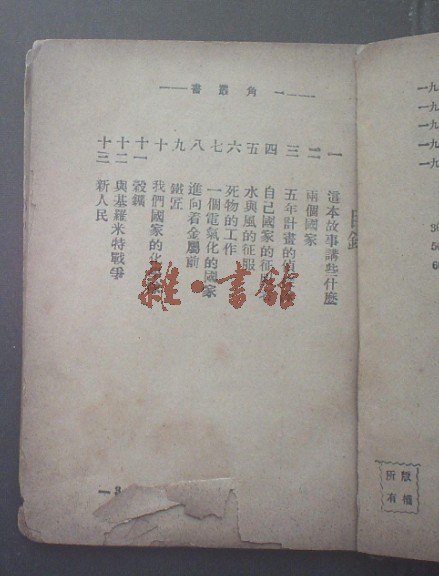 一角叢書
目錄
一 這本故事講些什麼
二 兩個國家
三 五年計畫的
四 自己國家的征
五 水與風的征服
六 死物的工作
七 一個電氣化的國家
八 進向着金屬前
九 鐵匠
十 我們國家的化
十一 穀鑛
十二 與基羅米特戰爭
十三 新人民
雜·書館
一九
一九
一九
一九
版權
所有